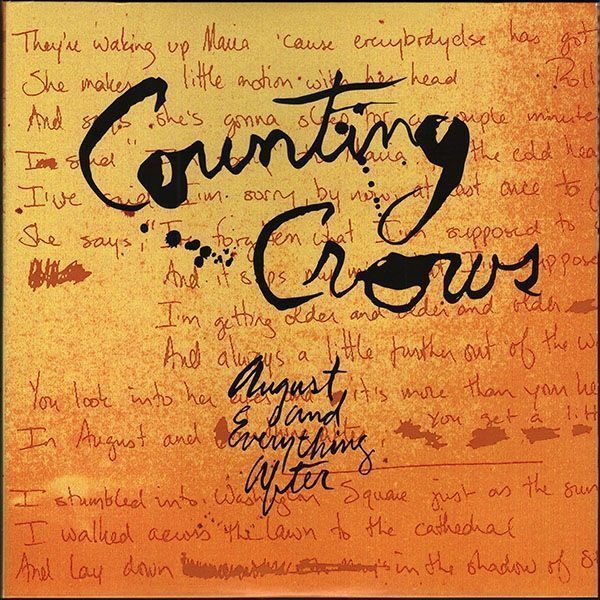 They're waking up Maria 'cause everybodyelse has got
She makes little motion with her head Roll
And says she's gonna sleep for a couple minute
Counting
I'm said "I Maria the cold hea
I've said I'm sorry by now, at last once to
She says, "I forgotten what I'm supposed to
Crows
And it slips my I'm suppose
I'm getting older and older and older
And always a little further out of the w
August
and
Everything
After
You look into her it's more than you he
In August and You get a litt
I stumbled into Washington Square just as the sun
I walked across the lawn to the cathedral
And lay down in the shadow of St